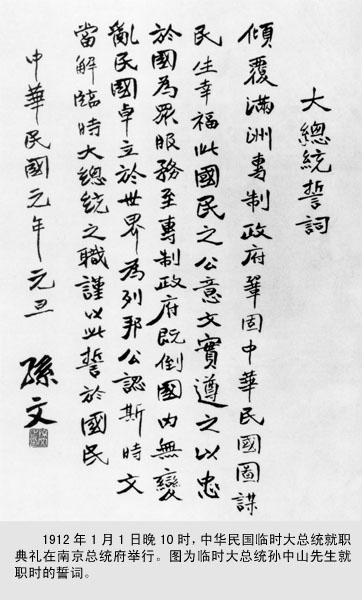 大總統誓詞
傾覆滿洲專制政府鞏固中華民國圖謀
民生幸福此國民之公意文實遵之以忠
於國為眾服務至專制政府既倒國內無變
亂民國卓立於世界為列邦公認斯時文
當解臨時大總統之職謹以此誓於國民
中華民國元年元旦 孫文
1912年1月1日晚10时，中华民国临时大总统就职
典礼在南京总统府举行。图为临时大总统孙中山先生就
职时的誓词。